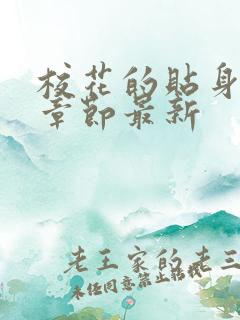 校花的贴身
章节最新
老王家的老三
未经同意禁止转载